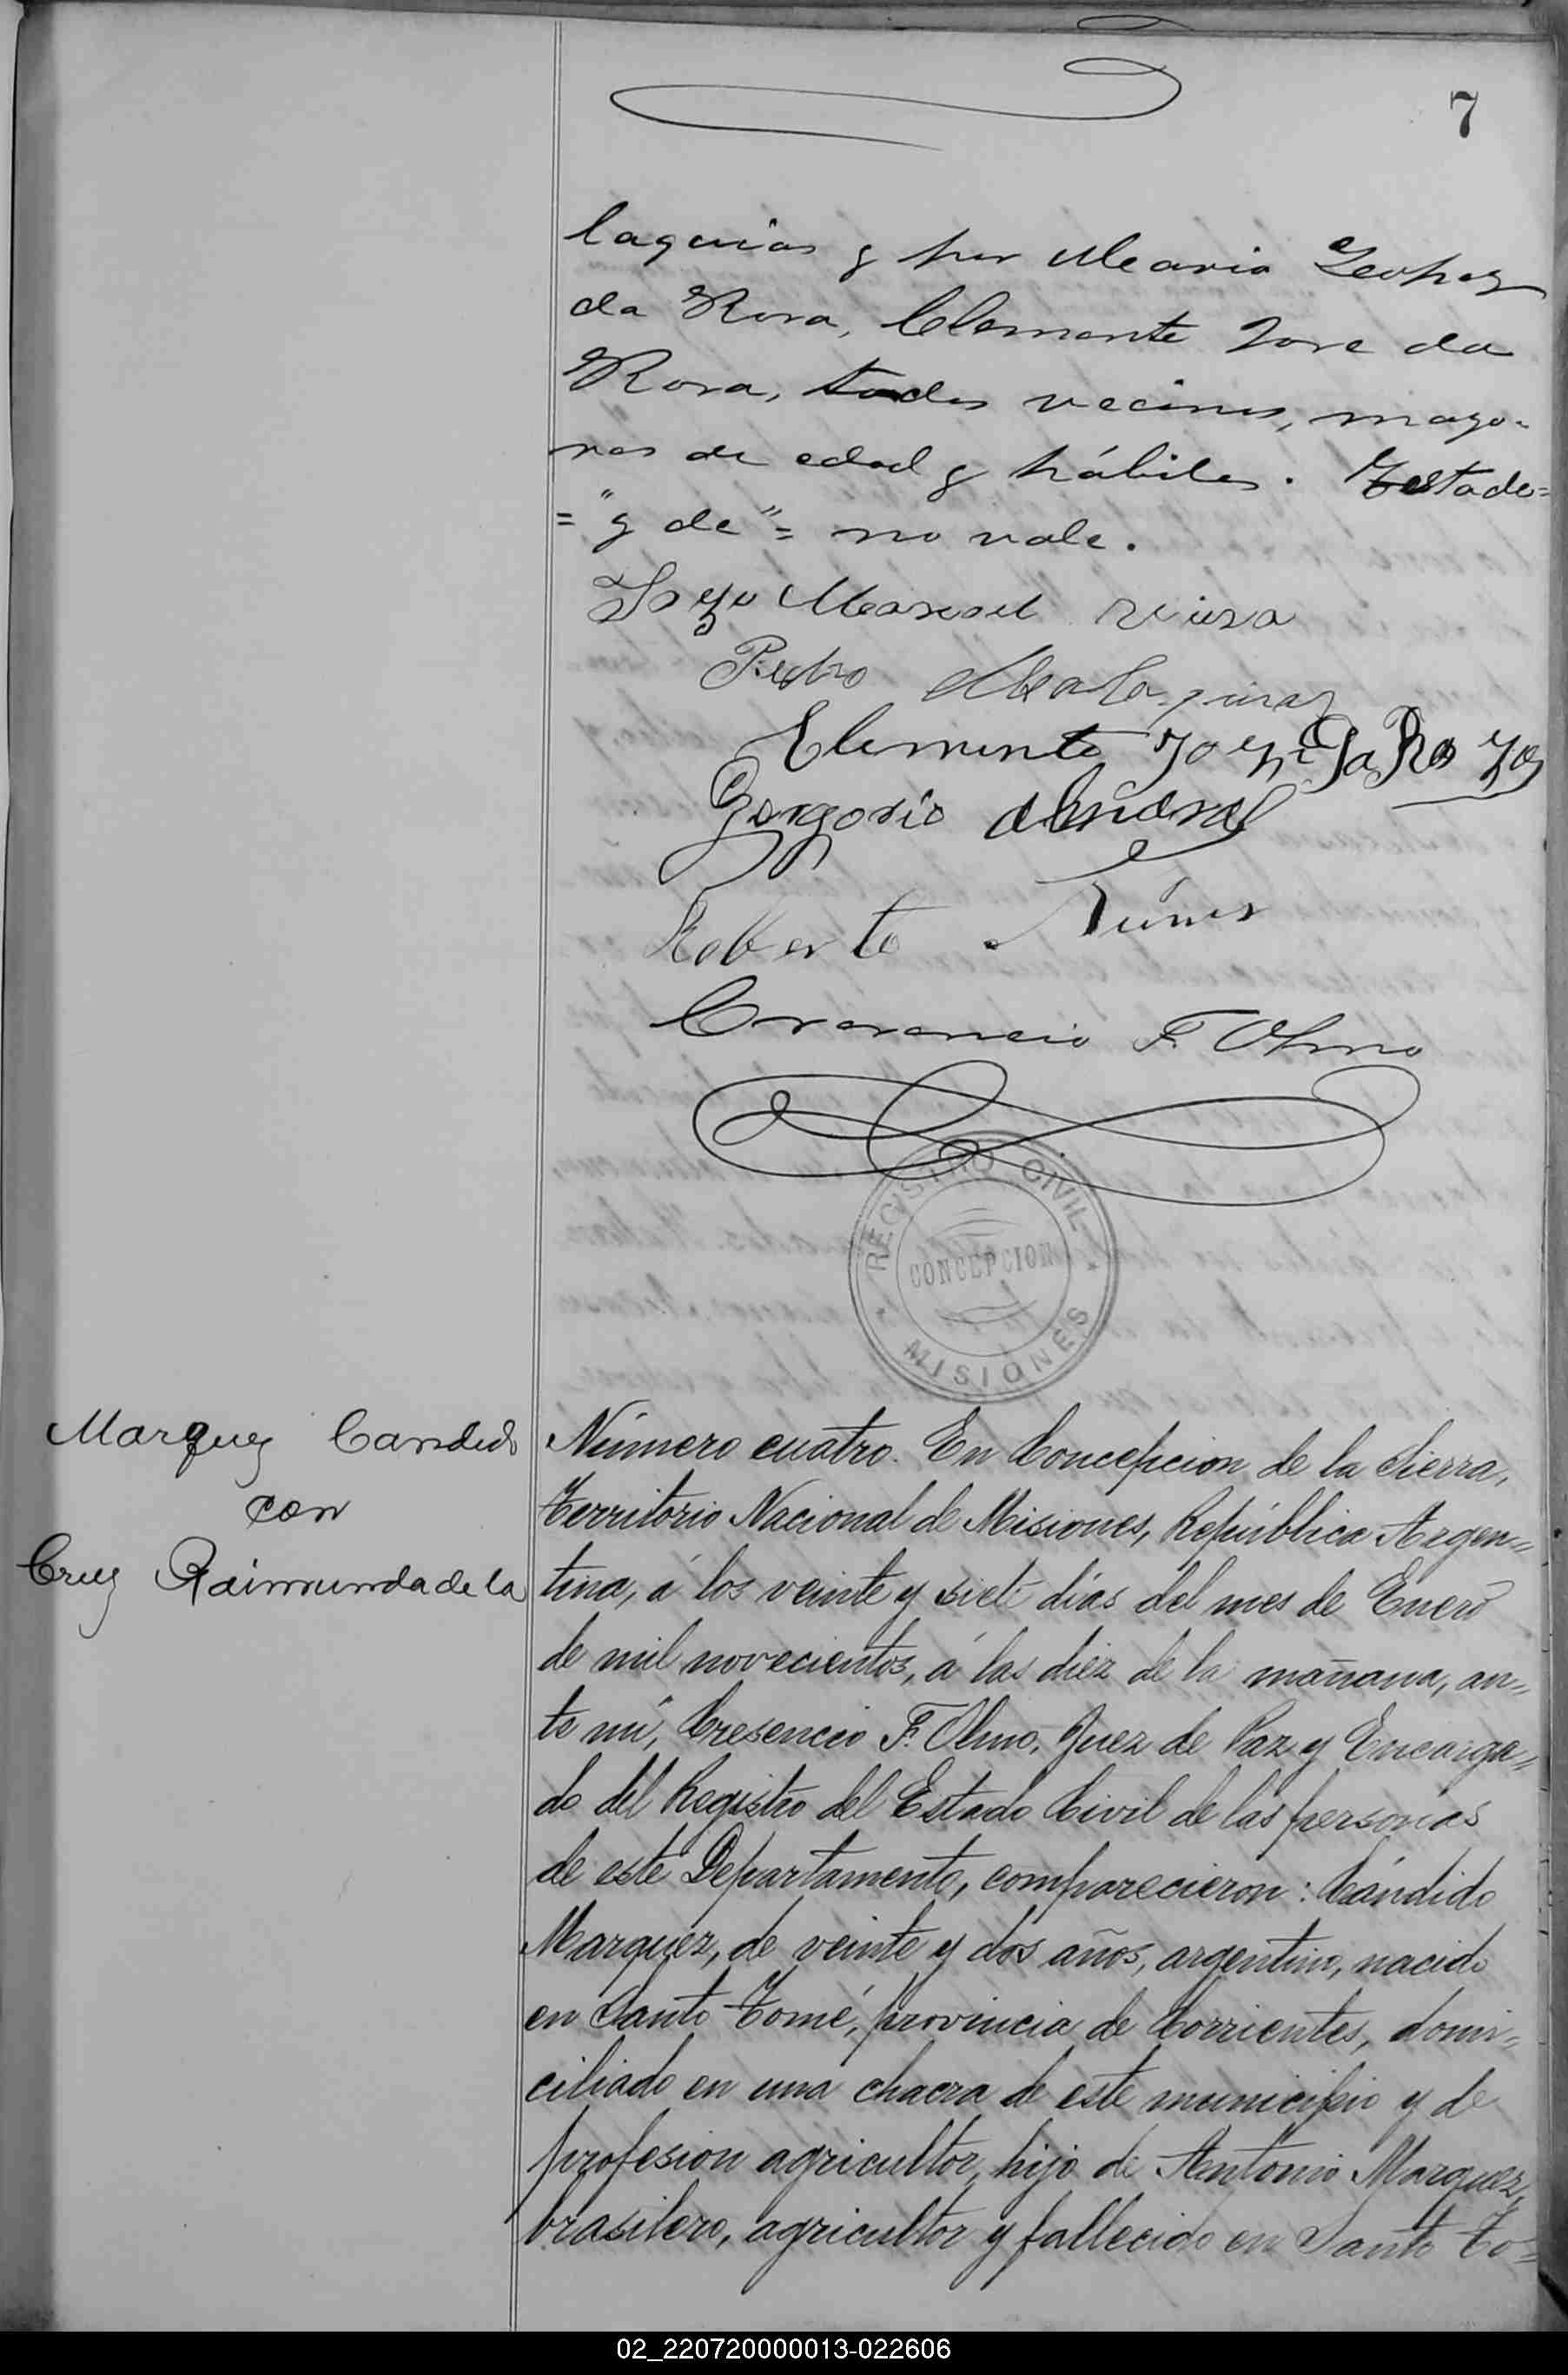 7
laquias y por Maria Lopez
da Rosa, Clemente Jose da
Rosa, todos vecinos, mayo-
res de edad y hábiles. Testado=
= "y de" = no vale.
Manoel
Pedro Malaquias
Clemente Da Roza
Gorgorio
Roberto Núnes
Cresencio F. Olmo
REGISTRO CIVIL
CONCEPCION
MISIONES
Marquez Candido
con
Cruz Raimunda de la
Número cuatro. En Concepcion de la Sierra,
Territorio Nacional de Misiones, República Argen=
tina, á los veinte y siete días del mes de Enero
de mil novecientos, á las diez de la mañana, an=
te mí, Cresencio F. Olmo, Juez de Paz y Encarga=
do del Registro del Estado Civil de las personas
de este Departamento, comparecieron: Cándido
Marquez, de veinte y dos años, argentino, nacido
en Santo Tomé, provincia de Corrientes, domi=
ciliado en una chacra de este municipio y de
profesion agricultor, hijo de Antonio Marquez,
brasilero, agricultor y fallecido en Santo To=
02_220720000013-022606